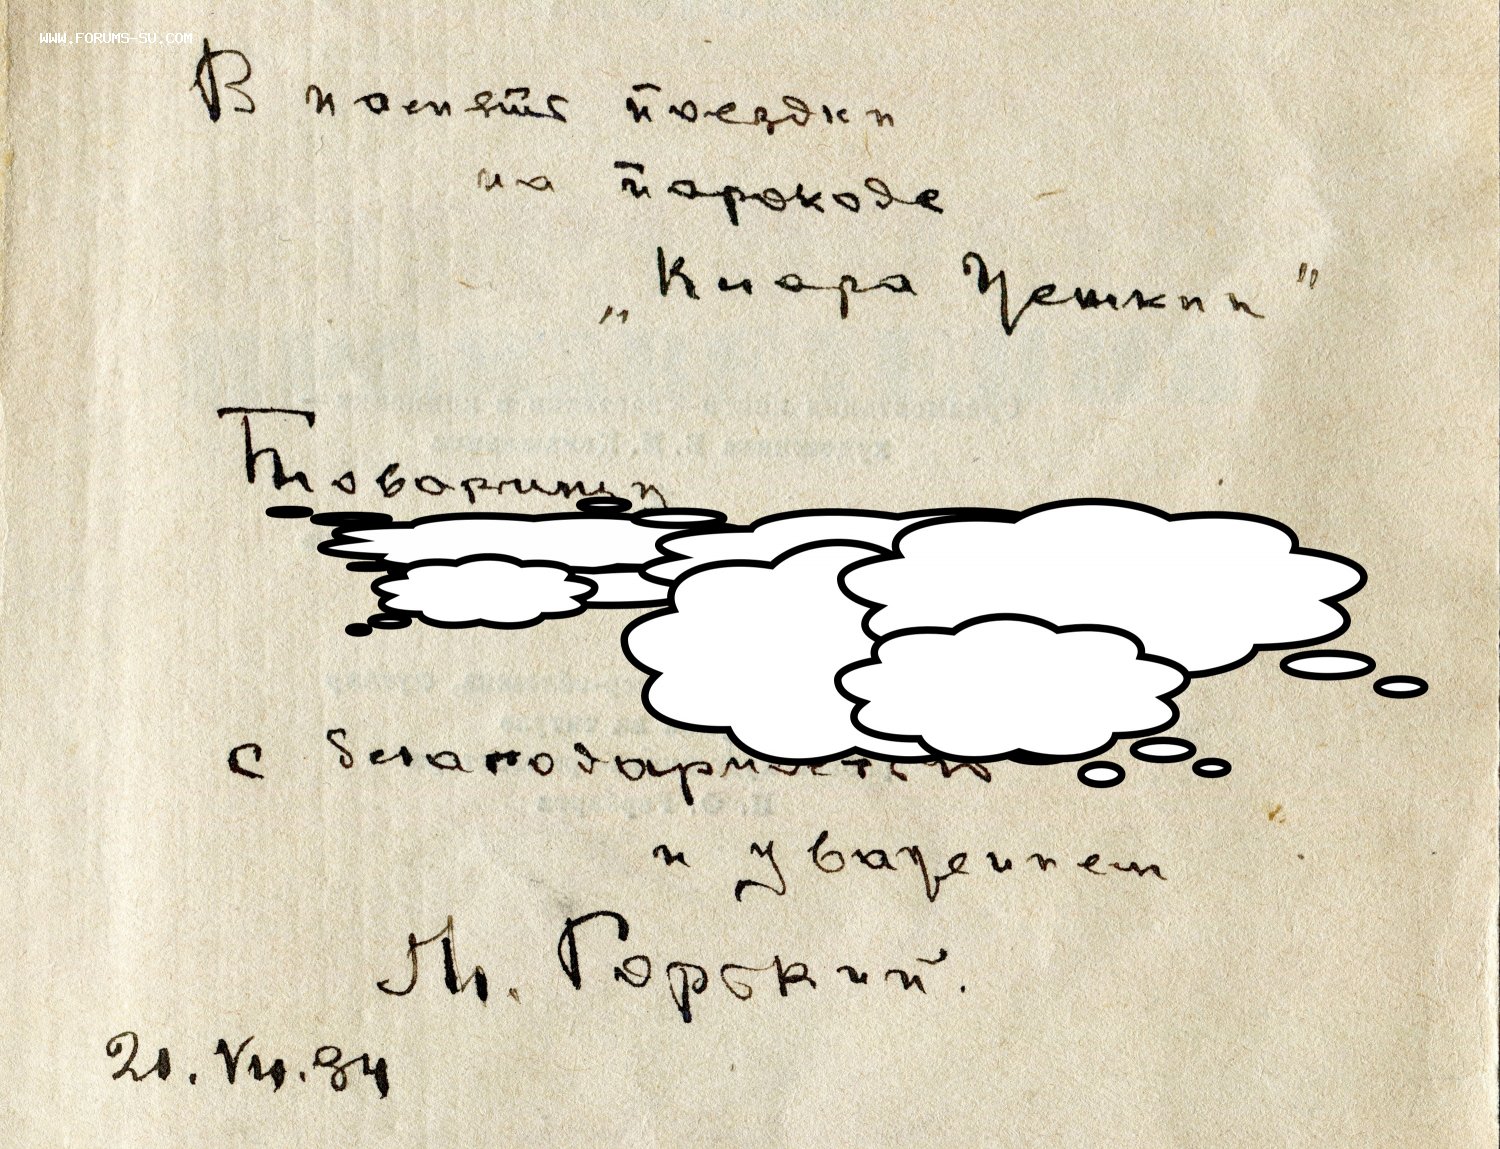 www.forums-su.com
В память поездки
на пароходе
„Клара Цеткин"
Товарищу
с благодарностью
и уважением
М. Горький.
21.VII.34